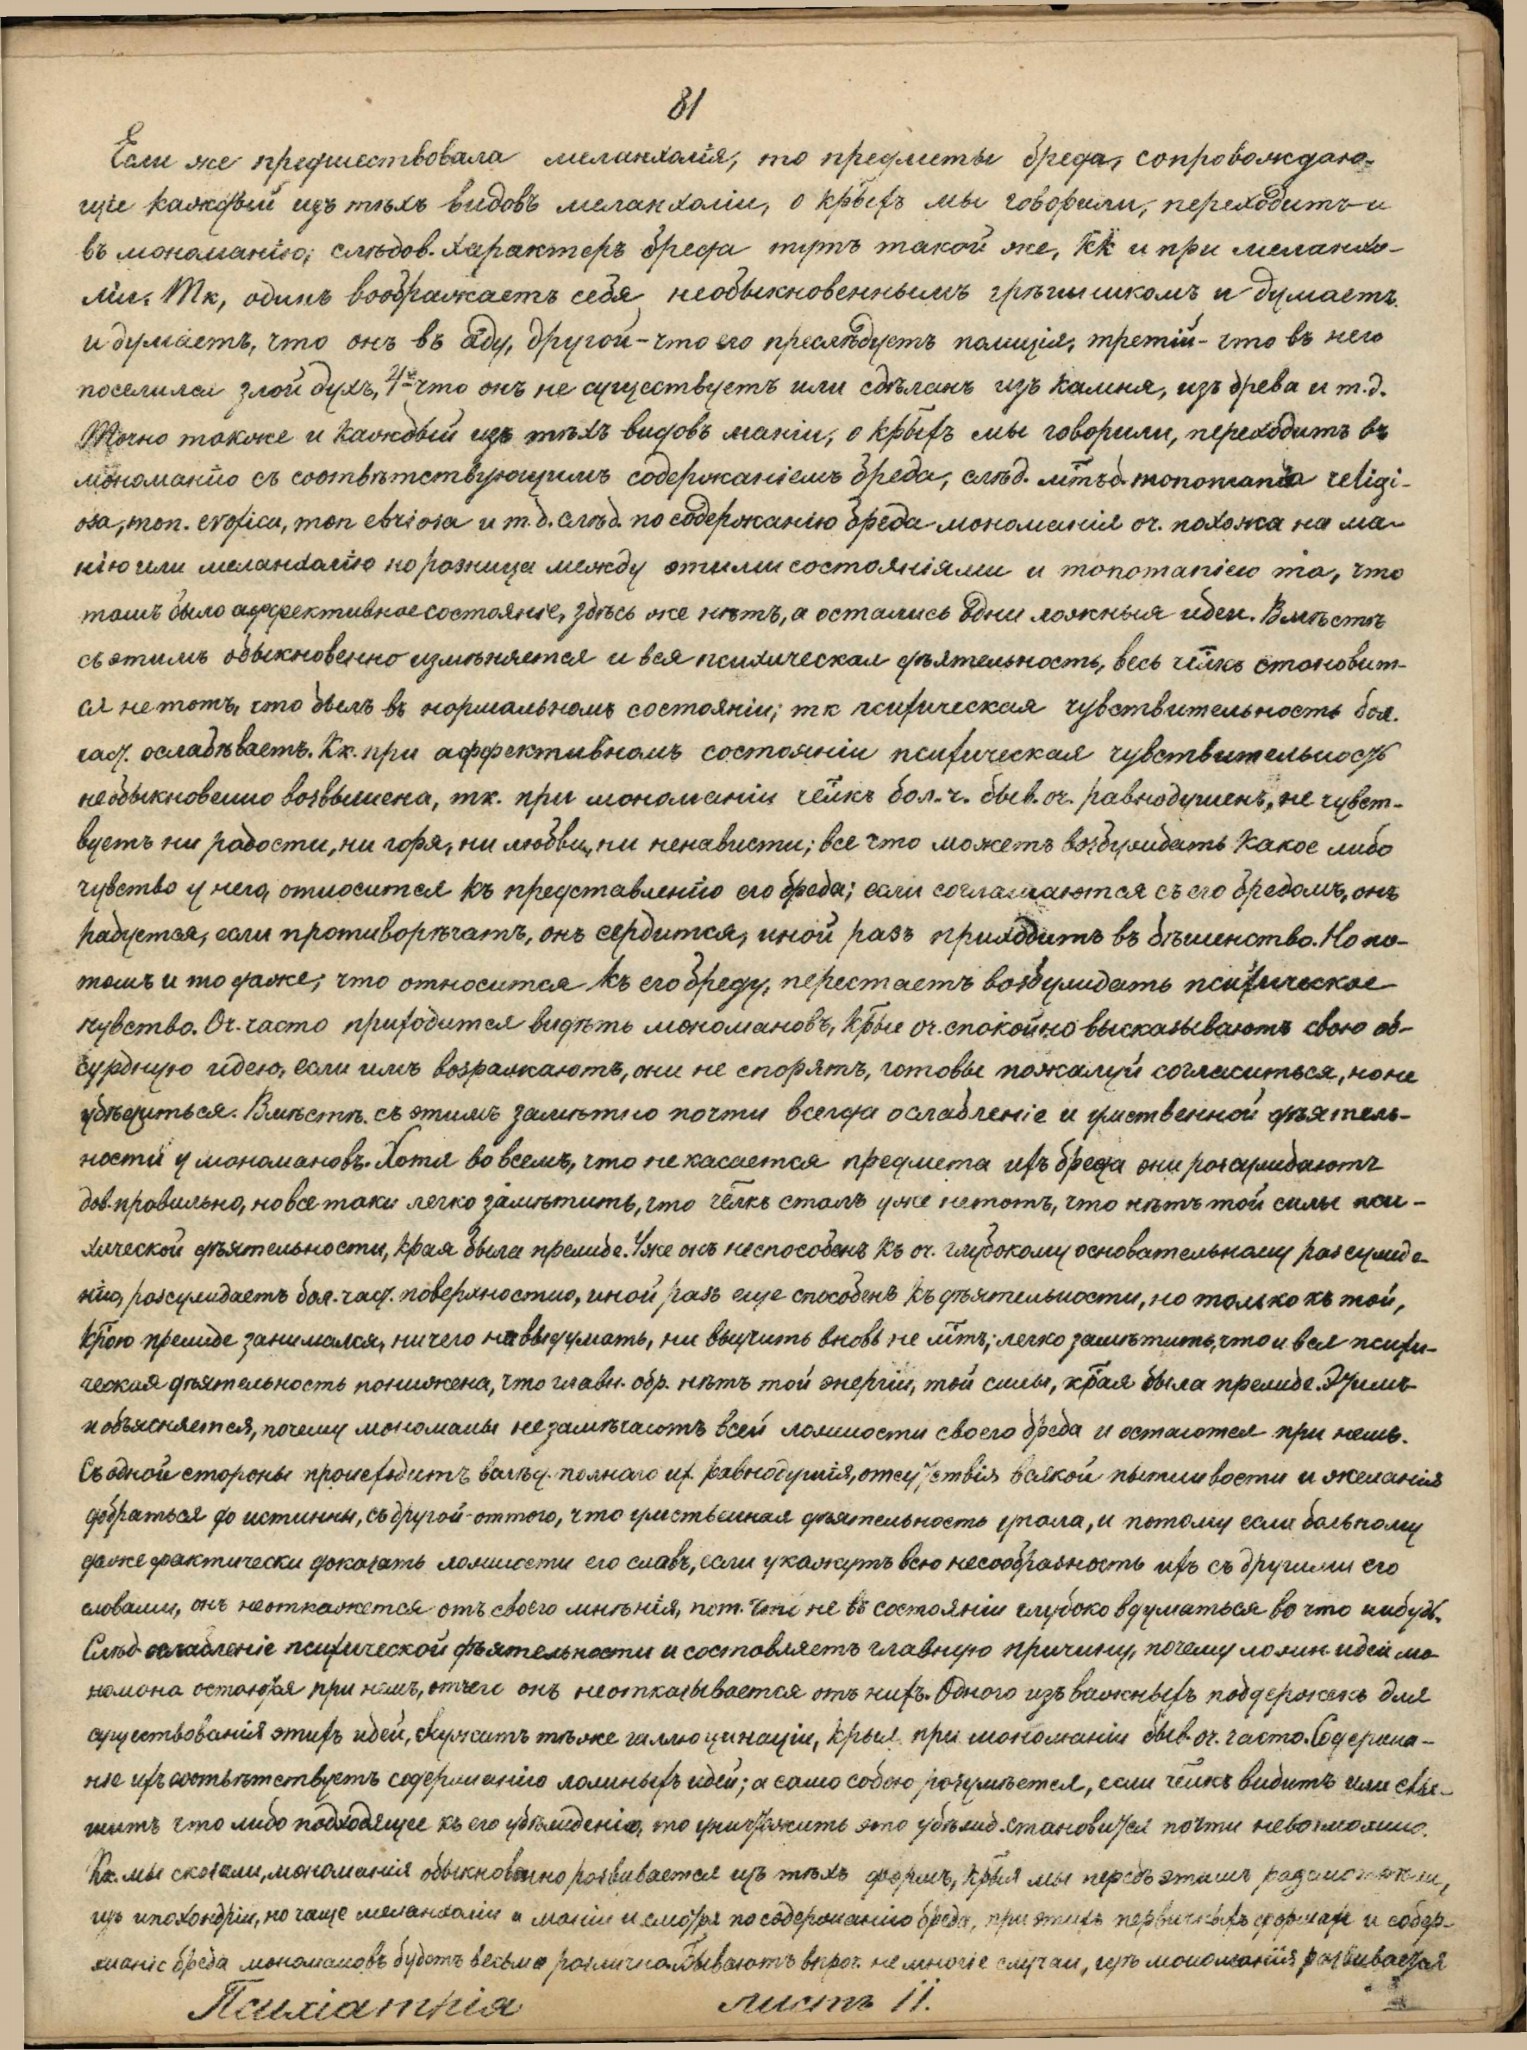 81
Если же предшествовала меланхолія, то предметы бреда, сопровождаю-
щіе каждый изъ тѣхъ видовъ меланхоліи, о крыхъ мы говорили, переходитъ и
въ мономанію; слѣдов. характеръ бреда тутъ такой же, кк и при меланхо-
ліи. Тк, одинъ воображаетъ себя необыкновеннымъ грѣшникомъ и думаетъ
и думаетъ, что онъ въ аду, другой - что его преслѣдуетъ полиція, третій - что въ него
поселился злой духъ, 4й - что онъ не существуетъ или сдѣланъ изъ камня, изъ древа и т.д.
Точно также и каждый изъ тѣхъ видовъ маніи, о крыхъ мы говорили, переходитъ въ
мономанію съ соотвѣтствующимъ содержаніемъ бреда, слѣд. мтъ б. monomania religi-
osa, mon. erotica, mon ebriosa и т.д. слѣд. по содержанію бреда мономанія оч. похожа на ма-
нію или меланхолію но разница между этими состояніями и monomaniею та, что
тамъ было аффективное состояніе, здѣсь же нѣтъ, а остались одни ложныя идеи. Вмѣстѣ
съ этимъ обыкновенно измѣняется и вся психическая дѣятельность, весь члкъ становит-
ся не тотъ, что былъ въ нормальномъ состояніи; тк психическая чувствительность бол.
част. ослабѣваетъ. Кк. при аффективномъ состояніи психическая чувствительность
необыкновенно возвышена, тк. при мономаніи члкъ бол. ч. быв. оч. равнодушенъ, не чувст-
вуетъ ни радости, ни горя, ни любви, ни ненависти; все что можетъ возбуждать какое либо
чувство у него, относится къ представленію его бреда; если соглашаются съ его бредомъ, онъ
радуется, если противорѣчатъ, онъ сердится, иной разъ приходитъ въ бѣшенство. Но по-
томъ и то даже, что относится къ его бреду, перестаетъ возбуждать психическое
чувство. Оч. часто приходится видѣть мономановъ, крые оч. спокойно высказываютъ свою аб-
сурдную идею, если имъ возражаютъ, они не спорятъ, готовы пожалуй согласиться, но не
убѣдиться. Вмѣстѣ съ этимъ замѣтно почти всегда ослабленіе и умственной дѣятель-
ности у мономановъ. Хотя во всемъ, что не касается предмета ихъ бреда они разсуждаютъ
дов. правильно, но все таки легко замѣтить, что члкъ сталъ уже не тотъ, что нѣтъ той силы пси-
хической дѣятельности, края была прежде. Уже онъ неспособенъ къ оч. глубокому основательному разсужде-
нію, разсуждаетъ бол. част. поверхностно, иной разъ еще способенъ къ дѣятельности, но только къ той,
крою прежде занимался, ничего не выдумать, ни выучить вновь не мтъ; легко замѣтить, что и вся психи-
ческая дѣятельность понижена, что главн. обр. нѣтъ той энергіи, той силы, края была прежде. Этимъ
и объясняется, почему мономаны не замѣчаютъ всей ложности своего бреда и остаются при немъ.
Съ одной стороны происходитъ вслѣд. полнаго их равнодушія, отсутствія всякой пытливости и желанія
добраться до истинны, съ другой - оттого, что умственная дѣятельность упала, и потому если больному
даже фактически доказать ложность его словъ, если укажутъ всю несообразность ихъ съ другими его
словами, онъ не откажется отъ своего мнѣнія, пот. что не въ состояніи глубоко вдуматься во что нибудь.
Слѣд. ослабленіе психической дѣятельности и составляетъ главную причину, почему ложн. идеи мо-
номана остаются при немъ, отчего онъ не отказывается отъ нихъ. Одного изъ важныхъ поддержекъ для
существованія этихъ идей, служатъ тѣже галлюцинаціи, крыя при мономаніи быв. оч. часто. Содержа-
ніе ихъ соотвѣтствуетъ содержанію ложныхъ идей; а само собою разумѣется, если члкъ видитъ или слы-
шитъ что либо подходящее къ его убѣжденію, то уничтожить это убѣжд. становится почти невозможно.
Кк. мы сказали, мономанія обыкновенно развивается изъ тѣхъ формъ, крыя мы передъ этимъ разсмотрѣли,
изъ ипохондріи, но чаще меланхоліи и маніи и смотря по содержанію бреда, при этихъ первичныхъ формах и содер-
жаніе бреда мономановъ будетъ весьма различно. Бываютъ впроч. немногіе случаи, гдѣ мономанія развивается
Психіатрія листъ 11.